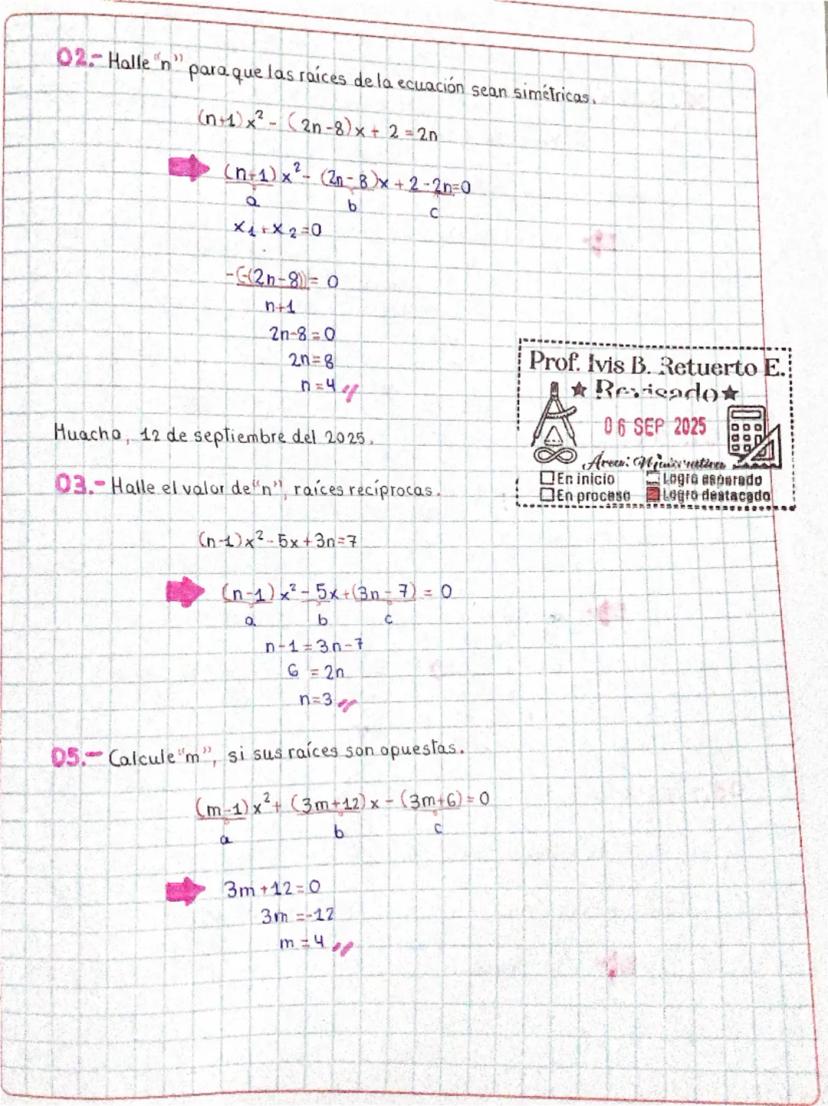 02.- Halle "n" para que las raíces de la ecuación sean simétricas.
(n+1)x² - (2n-8)x + 2 = 2n
(n+1)x² - (2n-8)x + 2-2n=0
a b c
x₁ + x₂ = 0
-(-(2n-8)) = 0
n+1
2n-8=0
2n=8
n=4
Prof. Ivis B. Retuerto E.
★ Revisado ★
06 SEP 2025
Área: Matemática
En inicio Logro esperado
En proceso Logro destacado
Huacho, 12 de septiembre del 2025.
03.- Halle el valor de "n", raíces recíprocas.
(n-1)x² - 5x + 3n=7
(n-1)x² - 5x + (3n-7) = 0
a b c
n-1 = 3n-7
6 = 2n
n=3
05.- Calcule "m", si sus raíces son opuestas.
(m-1)x² + (3m+12)x - (3m+6) = 0
a b c
3m+12=0
3m =-12
m = 4